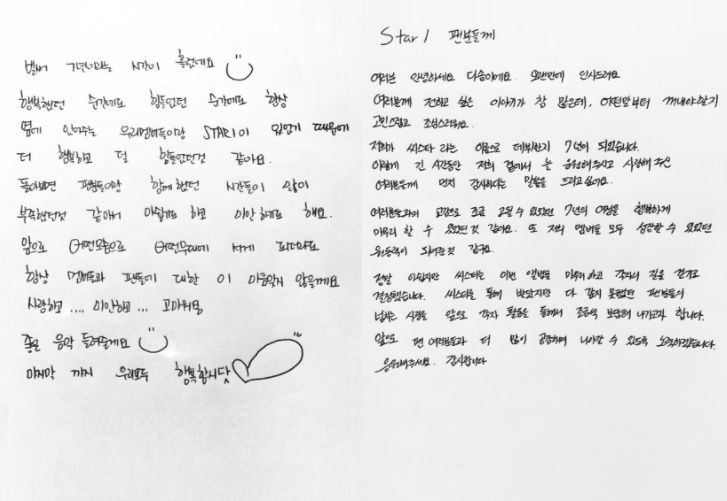 벌써 7년이라는 시간이 흘렀네요
행복했던 순간에도 힘들었던 순간에도 항상
옆에 있어주는 우리멤버들이랑 STAR1이 있었기 때문에
더 행복하고 덜 힘들었던것 같아요.
돌아보면 팬분들이랑 함께했던 시간들이 많이
부족했던것 같아서 아쉽기도 하고 미안하기도 해요.
앞으로 어떤모습으로 어떤무대에 서게 되더라도
항상 멤버들과 팬들에 대한 이 마음잊지 않을게요
사랑하고 .... 미안하고 ... 고마워요
좋은 음악 들려줄게요
마지막 까지 우리모두 행복합시닷
Star1 팬분들께
여러분 안녕하세요 다솜이에요. 오랜만에 인사드려요
여러분께 전하고 싶은 이야기가 참 많은데, 어떤말부터 꺼내야할지
고민스럽고 조심스러워요.
저희가 씨스타 라는 이름으로 데뷔한지 7년이 되었습니다.
이렇게 긴 시간동안 저희 곁에서 늘 응원해주시고 사랑해 주신
여러분들께 먼저 감사하다는 말씀을 드리고 싶어요.
여러분들과의 교감으로 조금 고될 수 있었던 7년의 여정을 행복하게
마무리 할 수 있었던 것 같아요. 또 저희 멤버들 모두 성장할 수 있었던
원동력이 되어준 것 같구요.
정말 아쉽지만 씨스타는 이번 앨범을 마무리하고 각자의 길을 걷기로
결정했습니다. 씨스타를 통해 받았지만 다 갚지 못했던 팬분들의
넘치는 사랑을 앞으로 각자 활동을 통해서 조금씩 보답해 나가고자 합니다.
앞으로 팬 여러분들과 더 많이 공감하며 나아갈 수 있도록 노력하겠습니다.
응원해주세요. 감사합니다